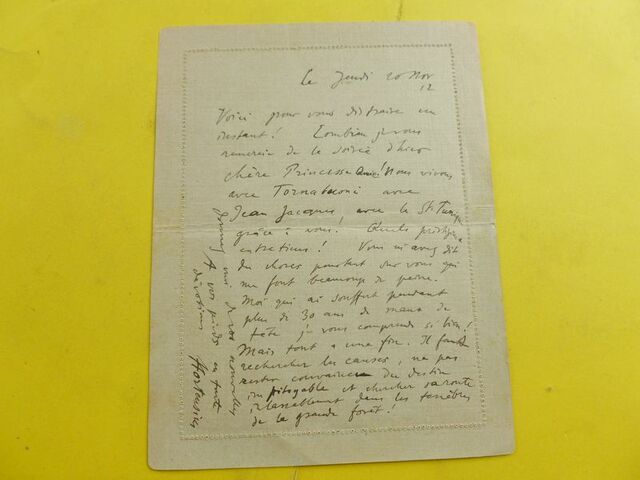 le Jeudi 20 Nov
12
Voici pour vous distraire un
instant! Combien je vous
remercie de la soirée d'hier
chère Princesse amie! Nous vivons
avec Tornabuoni avec
Jean Jacques, avec le St
grâce à vous! Quels
entretiens! Vous m'avez dit
des choses pourtant sur vous qui
me font beaucoup de peine.
Moi qui ai souffert pendant
plus de 30 ans de maux de
tête je vous comprends si bien!
Mais tout a une fin. Il faut
rechercher les causes, ne pas
rester convaincu du destin
impitoyable et chercher sa route
inlassablement dans les ténèbres
de la grande forêt!
Donnez moi de vos nouvelles
A vos pieds en toute
dévotion